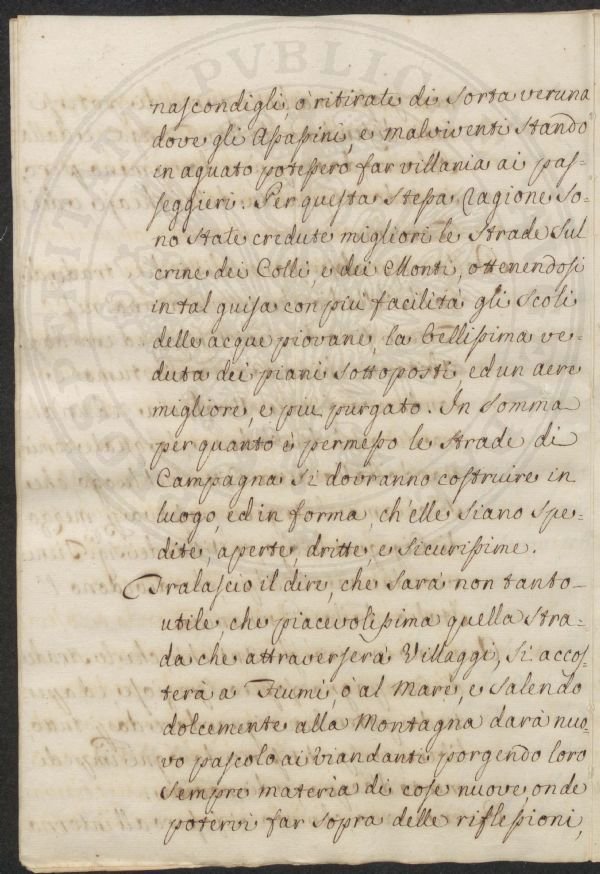 nascondigli, ò ritirate di sorta veruna
dove gli Assassini, e malviventi stando
in aguato potessero far villania ai pas-
seggieri. Per questa stessa ragione so-
no state credute migliori le strade sul
crine dei Colli, e dei Monti, ottenendosi
in tal guisa con più facilità gli scoli
delle acque piovane, la bellissima ve-
duta dei piani sottoposti, ed un aere
migliore, e piu purgato. In somma
per quanto è permesso le strade di
Campagna si dovranno costruire in
luogo, ed in forma, ch'elle siano spe-
dite, aperte, dritte, e sicurissime.
Tralascio il dire, che sarà non tanto
utile, che piacevolissima quella stra-
da che attraverserà Villaggi, si accos-
terà a Fiumi, ò al Mare, e salendo
dolcemente alla Montagna darà nuo-
vo pascolo ai viandanti porgendo loro
sempre materia di cose nuove, onde
potervi far sopra delle riflessioni,